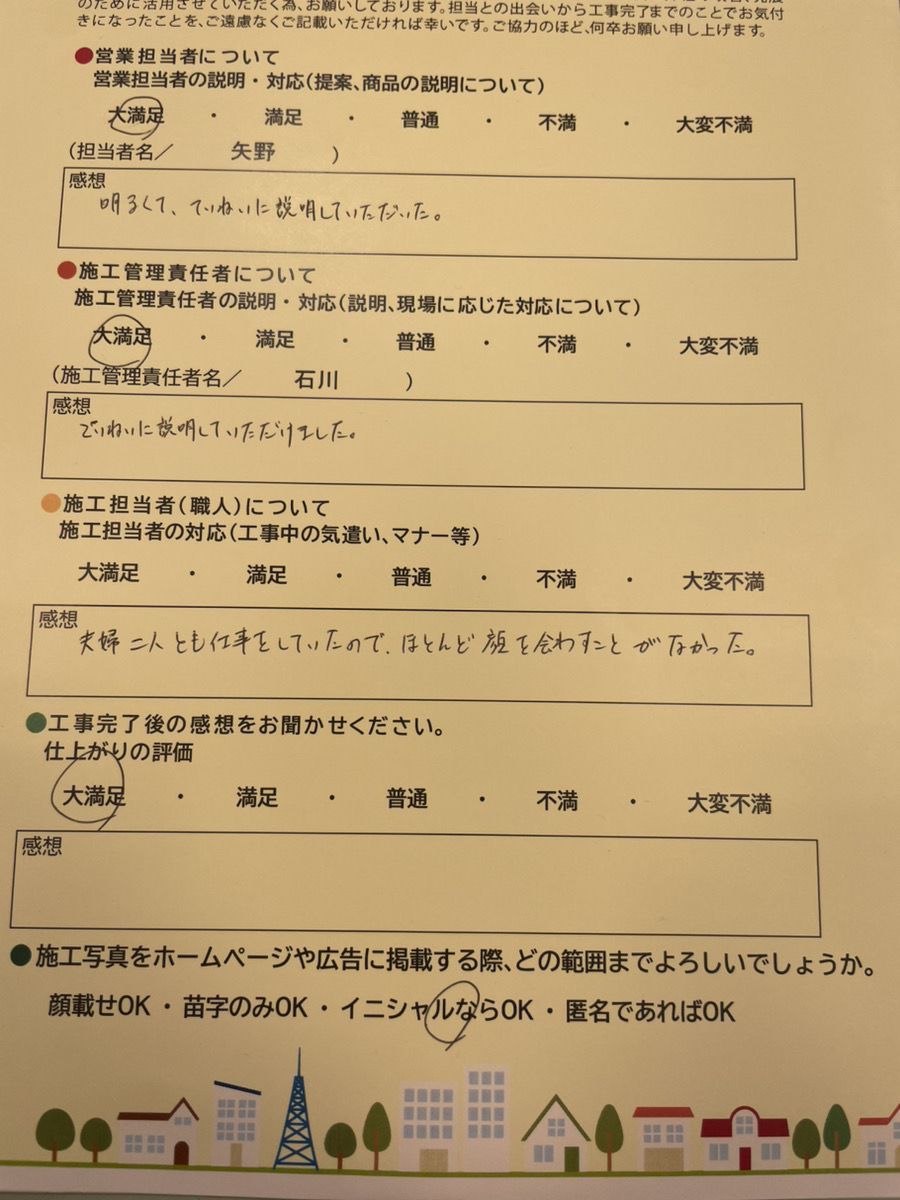 のために活用させていただく為、お願いしております。担当との出会いから工事完了までのことでお気付
きになったことを、ご遠慮なくご記載いただければ幸いです。ご協力のほど、何卒お願い申し上げます。
●営業担当者について
営業担当者の説明・対応(提案、商品の説明について)
大満足 ・ 満足 ・ 普通 ・ 不満 ・ 大変不満
(担当者名／ 矢野 )
感想
明るくて、ていねいに説明していただいた。
●施工管理責任者について
施工管理責任者の説明・対応(説明、現場に応じた対応について)
大満足 ・ 満足 ・ 普通 ・ 不満 ・ 大変不満
(施工管理責任者名／ 石川 )
感想
ていねいに説明していただけました。
●施工担当者(職人)について
施工担当者の対応(工事中の気遣い、マナー等)
大満足 ・ 満足 ・ 普通 ・ 不満 ・ 大変不満
感想
夫婦二人とも仕事をしていたので、ほとんど顔を会わすことがなかった。
●工事完了後の感想をお聞かせください。
仕上がりの評価
大満足 ・ 満足 ・ 普通 ・ 不満 ・ 大変不満
感想
●施工写真をホームページや広告に掲載する際、どの範囲までよろしいでしょうか。
顔載せOK ・ 苗字のみOK ・ イニシャルならOK ・ 匿名であればOK